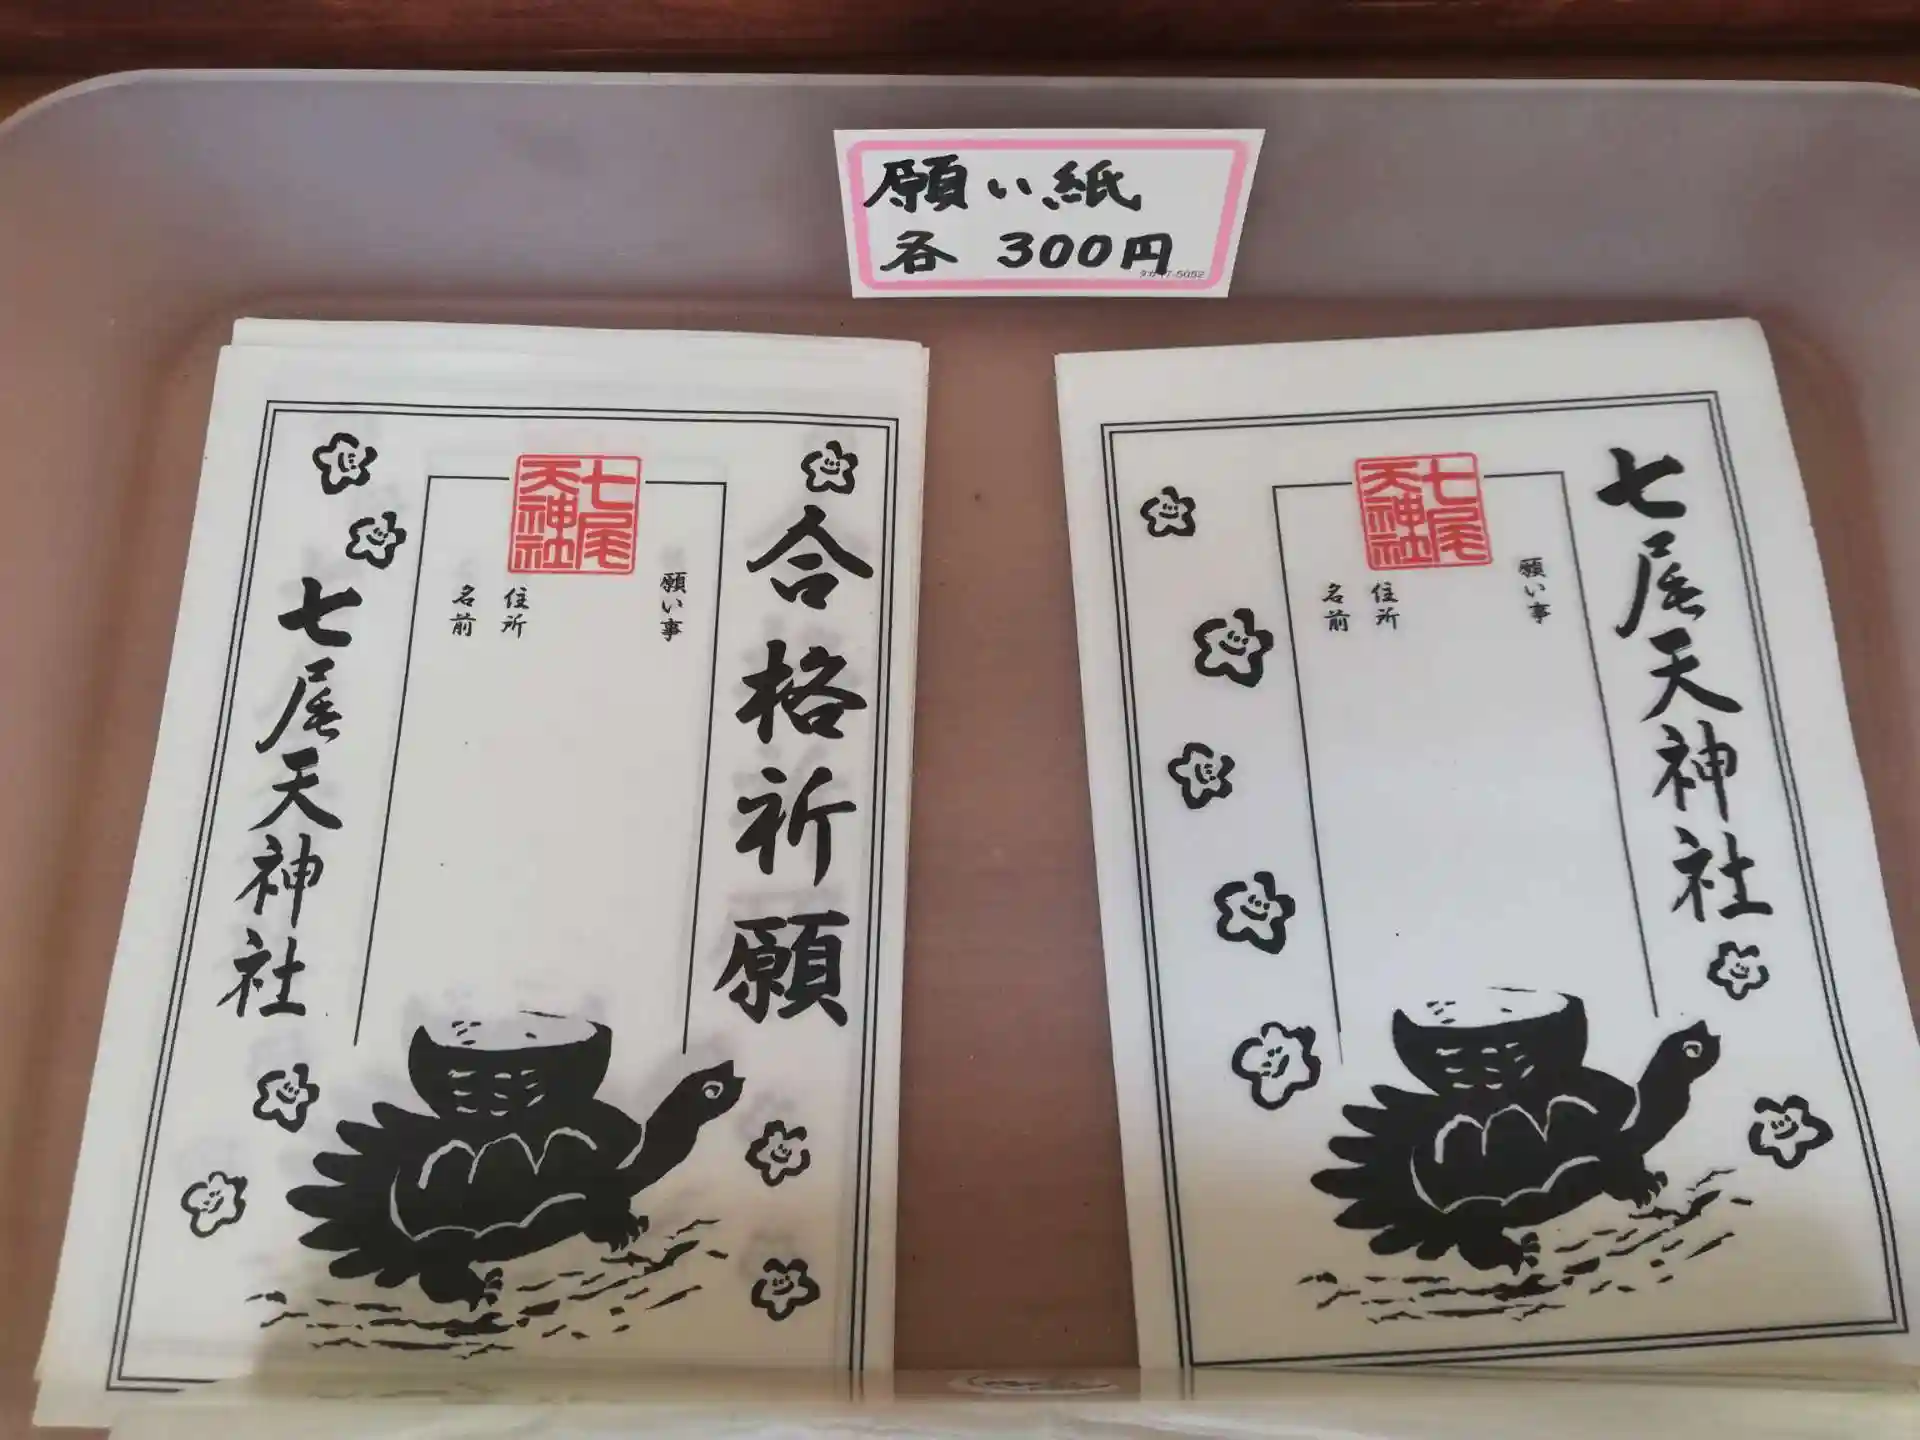 願い紙
各 300円
タカ17-5052
合格祈願
七尾
天神社
願い事
住所
名前
七尾天神社
七尾天神社
七尾
天神社
願い事
住所
名前